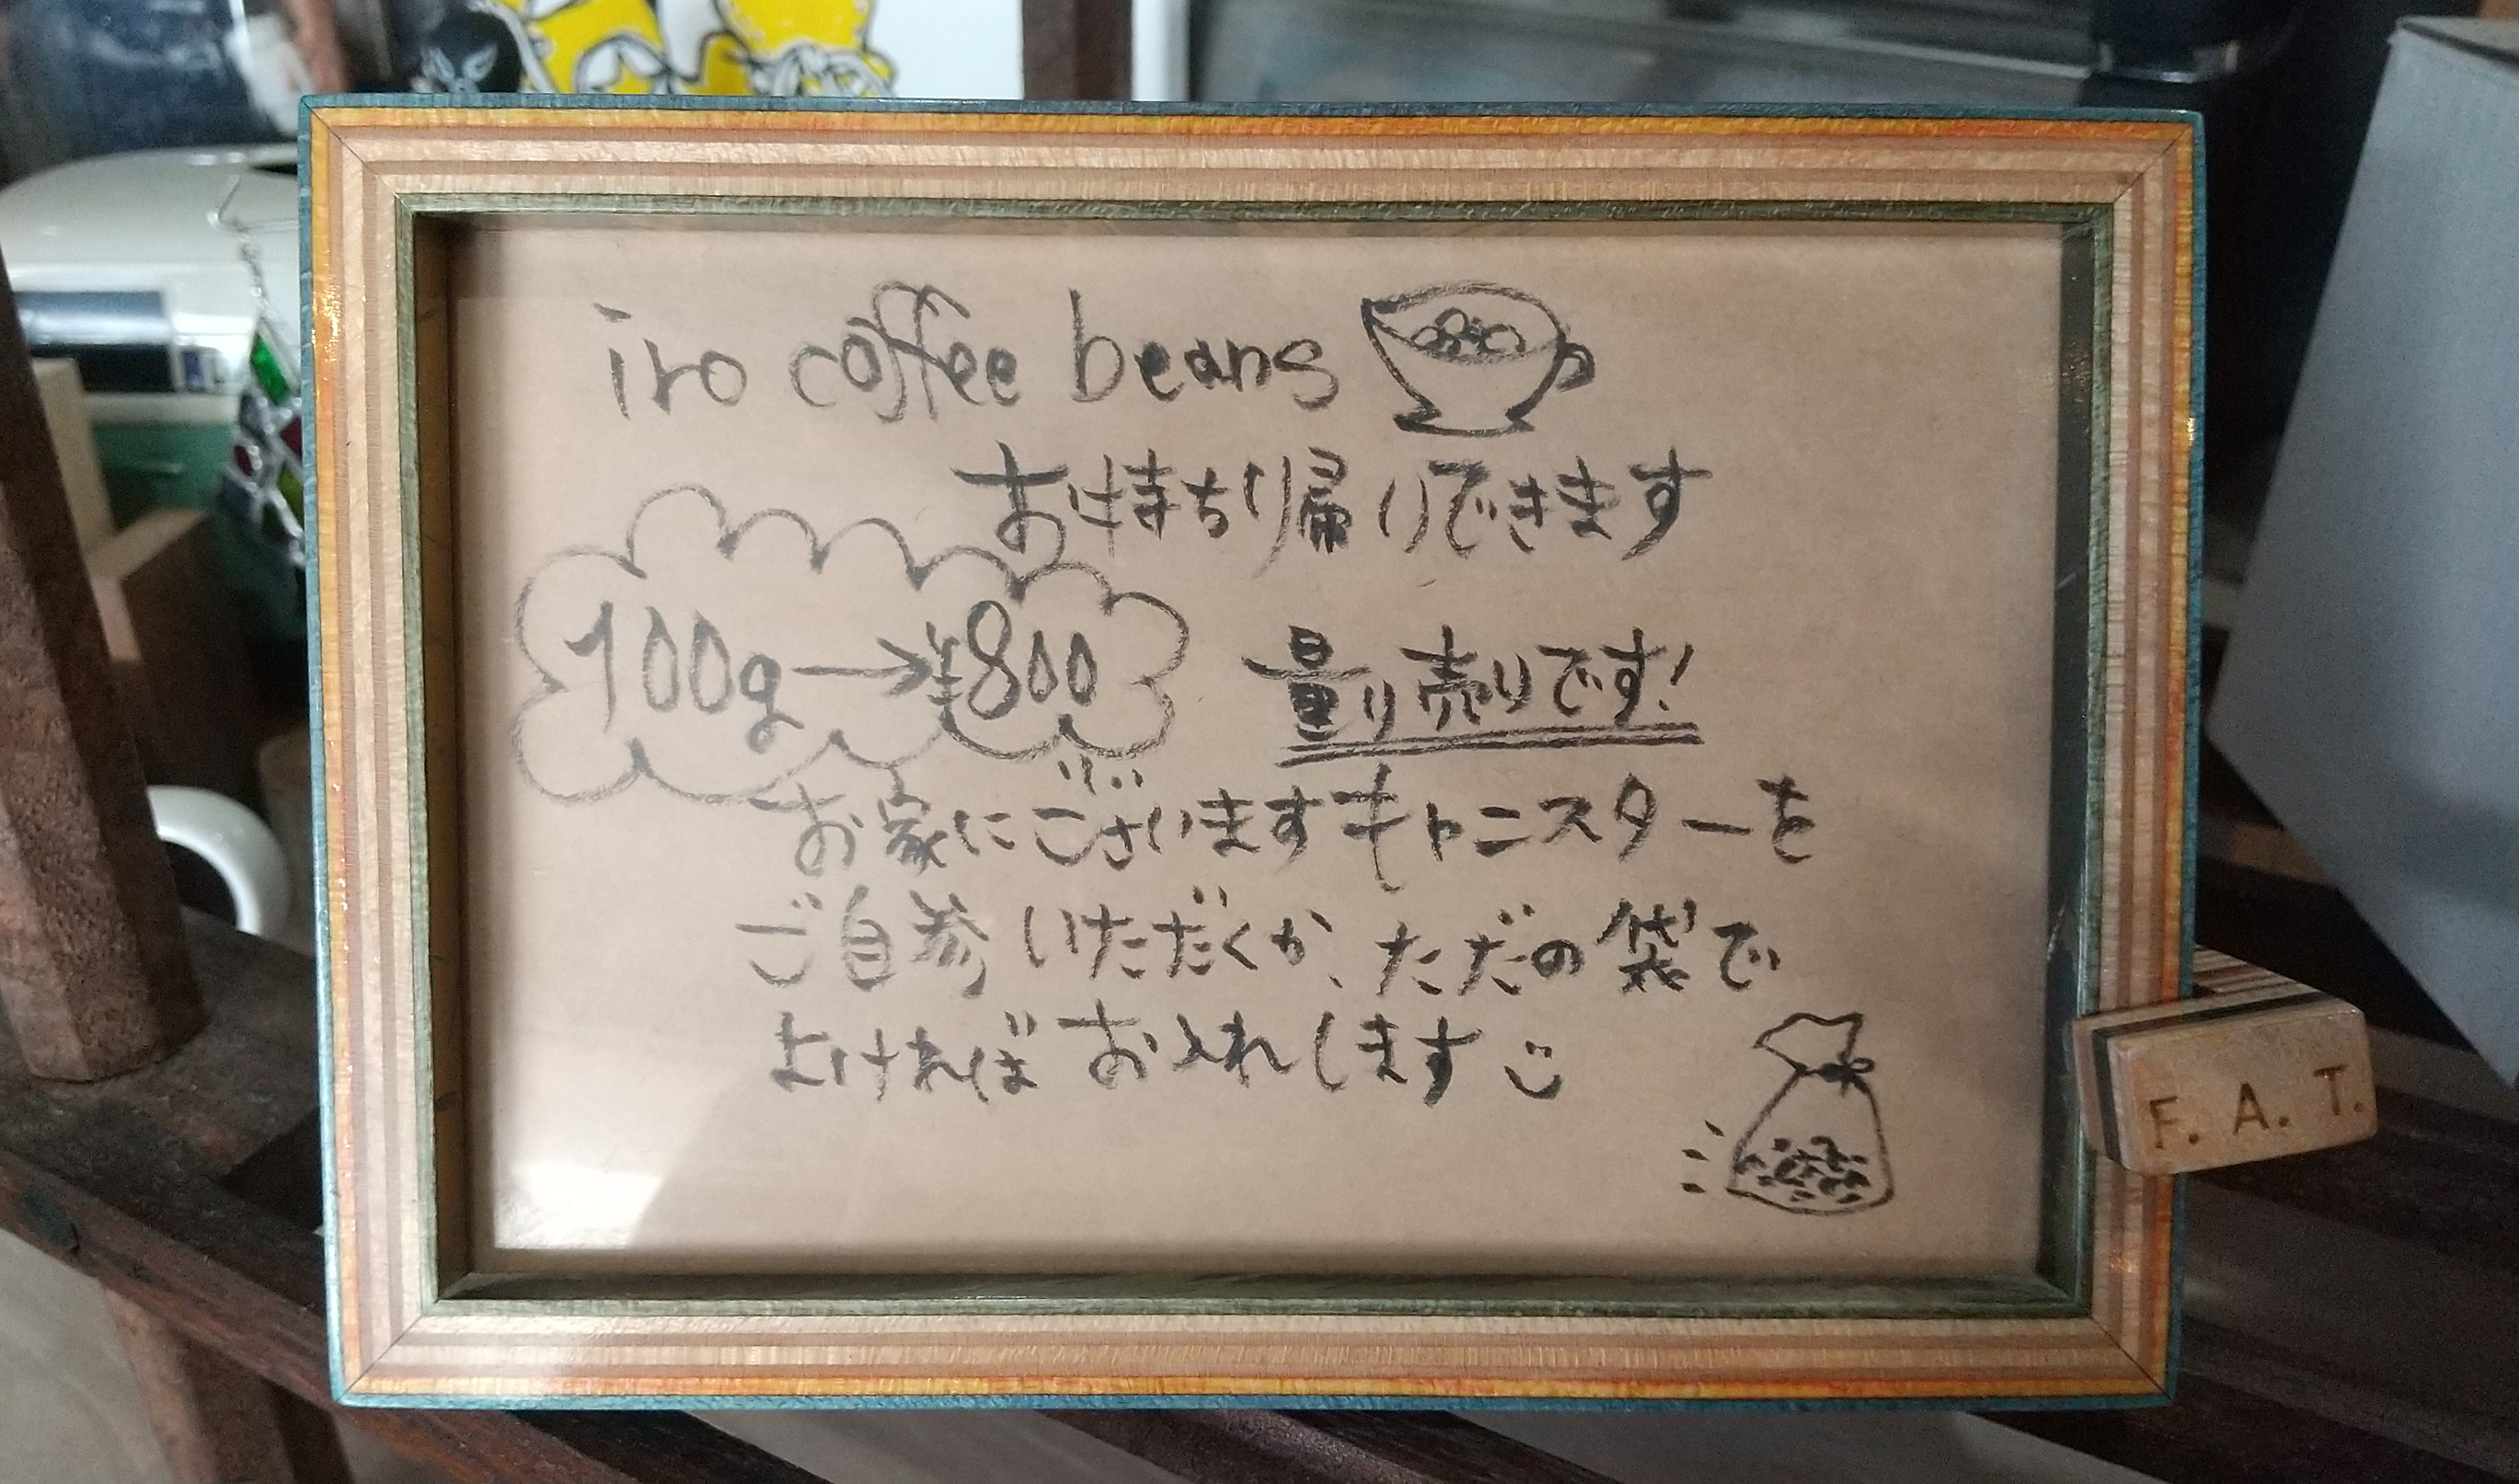 iro coffee beans
お持ち帰りできます
100g→¥800
量り売りです!
お家にございますキャニスターを
ご自参いただくか、ただの袋で
よければお入れします
F. A. T.